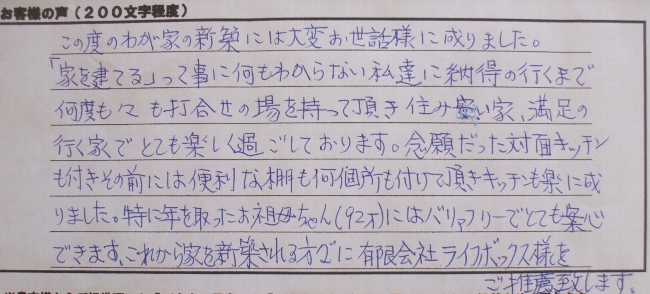 お客様の声（２００文字程度）
この度のわが家の新築には大変お世話様に成りました。
「家を建てる」って事に何もわからない私達に納得の行くまで
何度も々も打合せの場を持って頂き住み安い家、満足の
行く家でとても楽しく過ごしております。念願だった対面キッチン
も付きその前には便利な棚も何個所も付けて頂きキッチンも楽に成
りました。特に年を取ったお祖母ちゃん(92才)にはバリアフリーでとても安心
できます。これから家を新築される方々に有限会社ライフボックス様を
ご推薦致します。